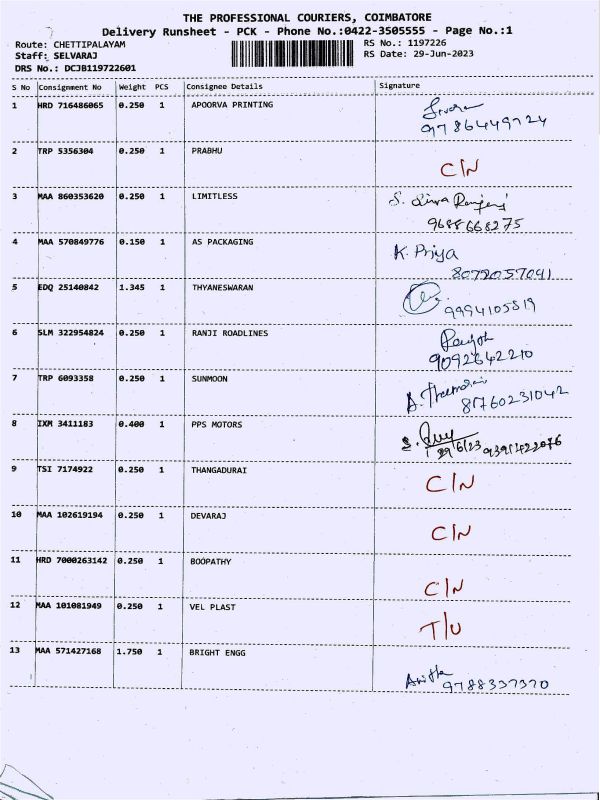 THE PROFESSIONAL COURIERS, COIMBATORE
Delivery Runsheet - PCK - Phone No.:0422-3505555 - Page No.:1
Route: CHETTIPALAYAM RS No.: 1197226
Staff: SELVARAJ RS Date: 29-Jun-2023
DRS No.: DCJB119722601
S No Consignment No Weight PCS Consignee Details Signature
1 HRD 716486065 0.250 1 APOORVA PRINTING
9786449724
2 TRP 5356304 0.250 1 PRABHU
C/N
3 MAA 860353620 0.250 1 LIMITLESS S.
9688668275
4 MAA 570849776 0.150 1 AS PACKAGING K. Priya
8072057041
5 EDQ 25140842 1.345 1 THYANESWARAN
9994105819
6 SLM 322954824 0.250 1 RANJI ROADLINES
9092642210
7 TRP 6093358 0.250 1 SUNMOON A.
8760231042
8 IXM 3411183 0.400 1 PPS MOTORS S.
29/6/23
9 TSI 7174922 0.250 1 THANGADURAI
C/N
10 MAA 102619194 0.250 1 DEVARAJ
C/N
11 HRD 7000263142 0.250 1 BOOPATHY
C/N
12 MAA 101081949 0.250 1 VEL PLAST
T/U
13 MAA 571427168 1.750 1 BRIGHT ENGG
9788337370